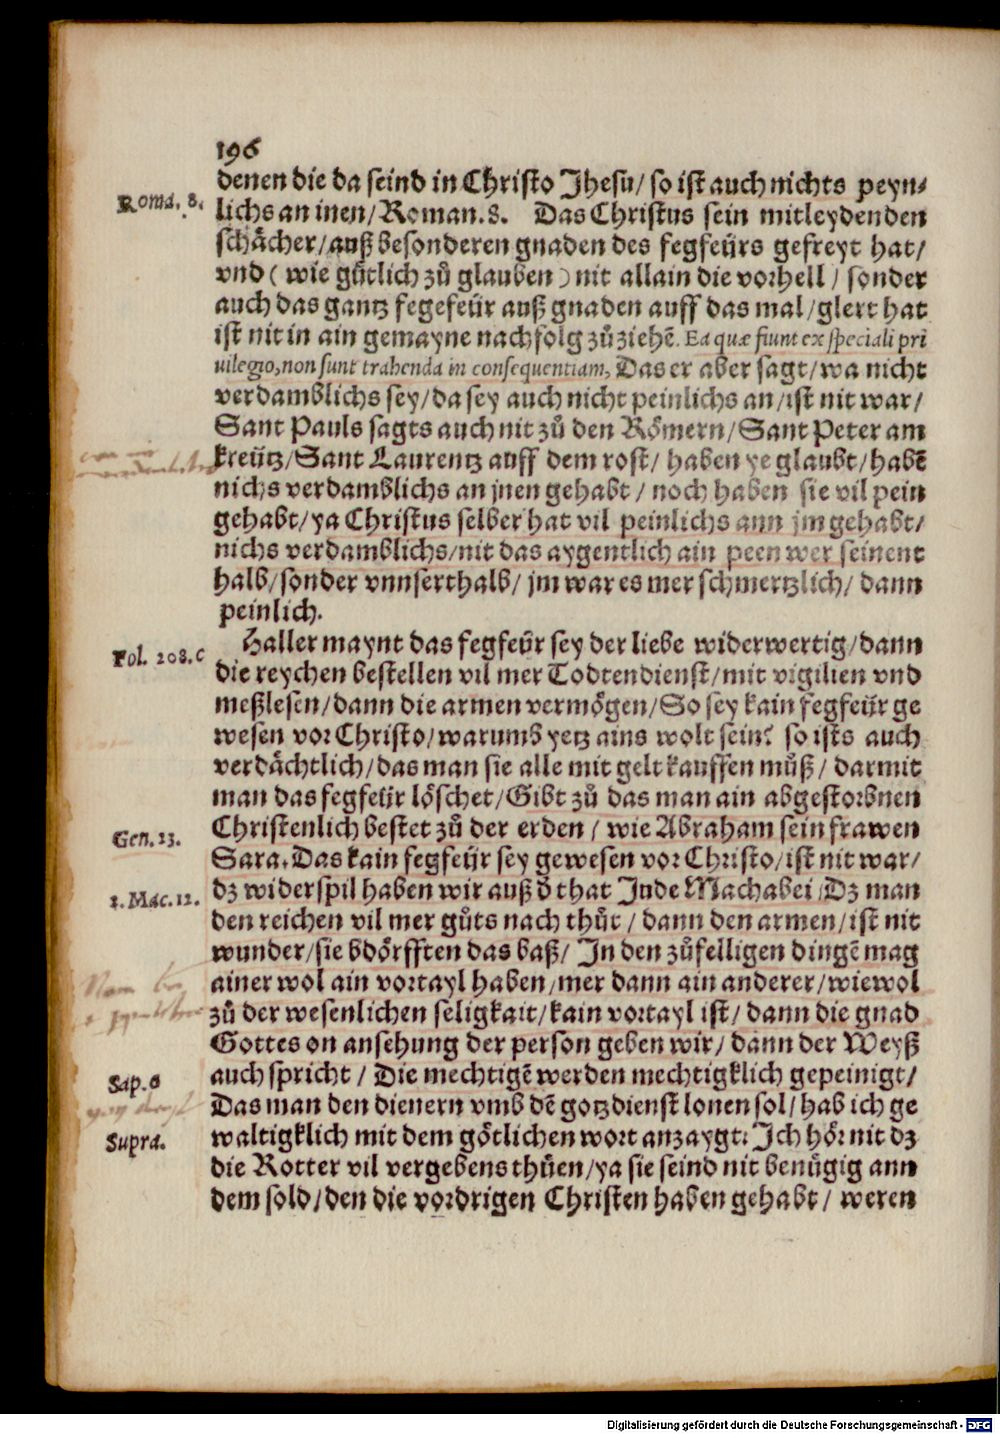 196
denen die da seind in Christo Jhesu/ so ist auch nichts peyn⸗
Roma. 8.
lichs an inen/ Roman. 8. Das Christus sein mitleydenden
schächer/ auß besonderen gnaden des fegfeürs gefreyt hat/
vnd ( wie gůtlich zů glauben ) nit allain die vorhell / sonder
auch das gantz fegefeür auß gnaden auff das mal/ glert hat
ist nit in ain gemayne nachfolg zů ziehẽ. Ea quæ fiunt ex speciali pri
uilegio, non sunt trahenda in consequentiam, Das er aber sagt/ wa nicht
verdamblichs sey/ da sey auch nicht peinlichs an/ ist nit war/
Sant Pauls sagts auch nit zů den Römern/ Sant Peter am
kreütz/ Sant Laurentz auff dem rost/ haben ye glaubt/ habẽ
nichs verdamblichs an jnen gehabt / noch haben sie vil pein
gehabt/ ya Christus selber hat vil peinlichs ann jm gehabt/
nichs verdamblichs/ nit das aygentlich ain peen wer seinent
halb/ sonder vnnserthalb/ jm war es mer schmertzlich/ dann
peinlich.
Haller maynt das fegfeür sey der liebe widerwertig/ dann
Fol. 208. c
die reychen bestellen vil mer Todtendienst/ mit vigilien vnd
meßlesen/ dann die armen vermögen/ So sey kain fegfeür ge
wesen vor Christo/ warumb yetz ains wolt sein? so ists auch
verdächtlich/ das man sie alle mit gelt kauffen můß/ darmit
man das fegfeür löschet/ Gibt zů das man ain abgestorbnen
Christenlich bestet zů der erden / wie Abraham sein frawen
Gen. 23.
Sara. Das kain fegfeür sey gewesen vor Christo/ ist nit war/
dz widerspil haben wir auß d̕ that Jude Machabei / Dz man
2. Mac. 12.
den reichen vil mer gůts nach thůt / dann den armen/ ist nit
wunder/ sie bdörfften das baß/ In den zůfelligen dingẽ mag
ainer wol ain vortayl haben/ mer dann ain anderer/ wiewol
zů der wesenlichen seligkait/ kain vortayl ist/ dann die gnad
Gottes on ansehung der person geben wir/ dann der Weyß
auch spricht / Die mechtigẽ werden mechtigklich gepeinigt/
Sap. 6
Das man den dienern vmb dẽ gotzdienst lonen sol/ hab ich ge
waltigklich mit dem götlichen wort anzaygt: Ich hör nit dz
Supra.
die Rotter vil vergebens thüen/ ya sie seind nit benügig ann
dem sold/ den die vordrigen Christen haben gehabt / weren
Digitalisierung gefördert durch die Deutsche Forschungsgemeinschaft - DFG